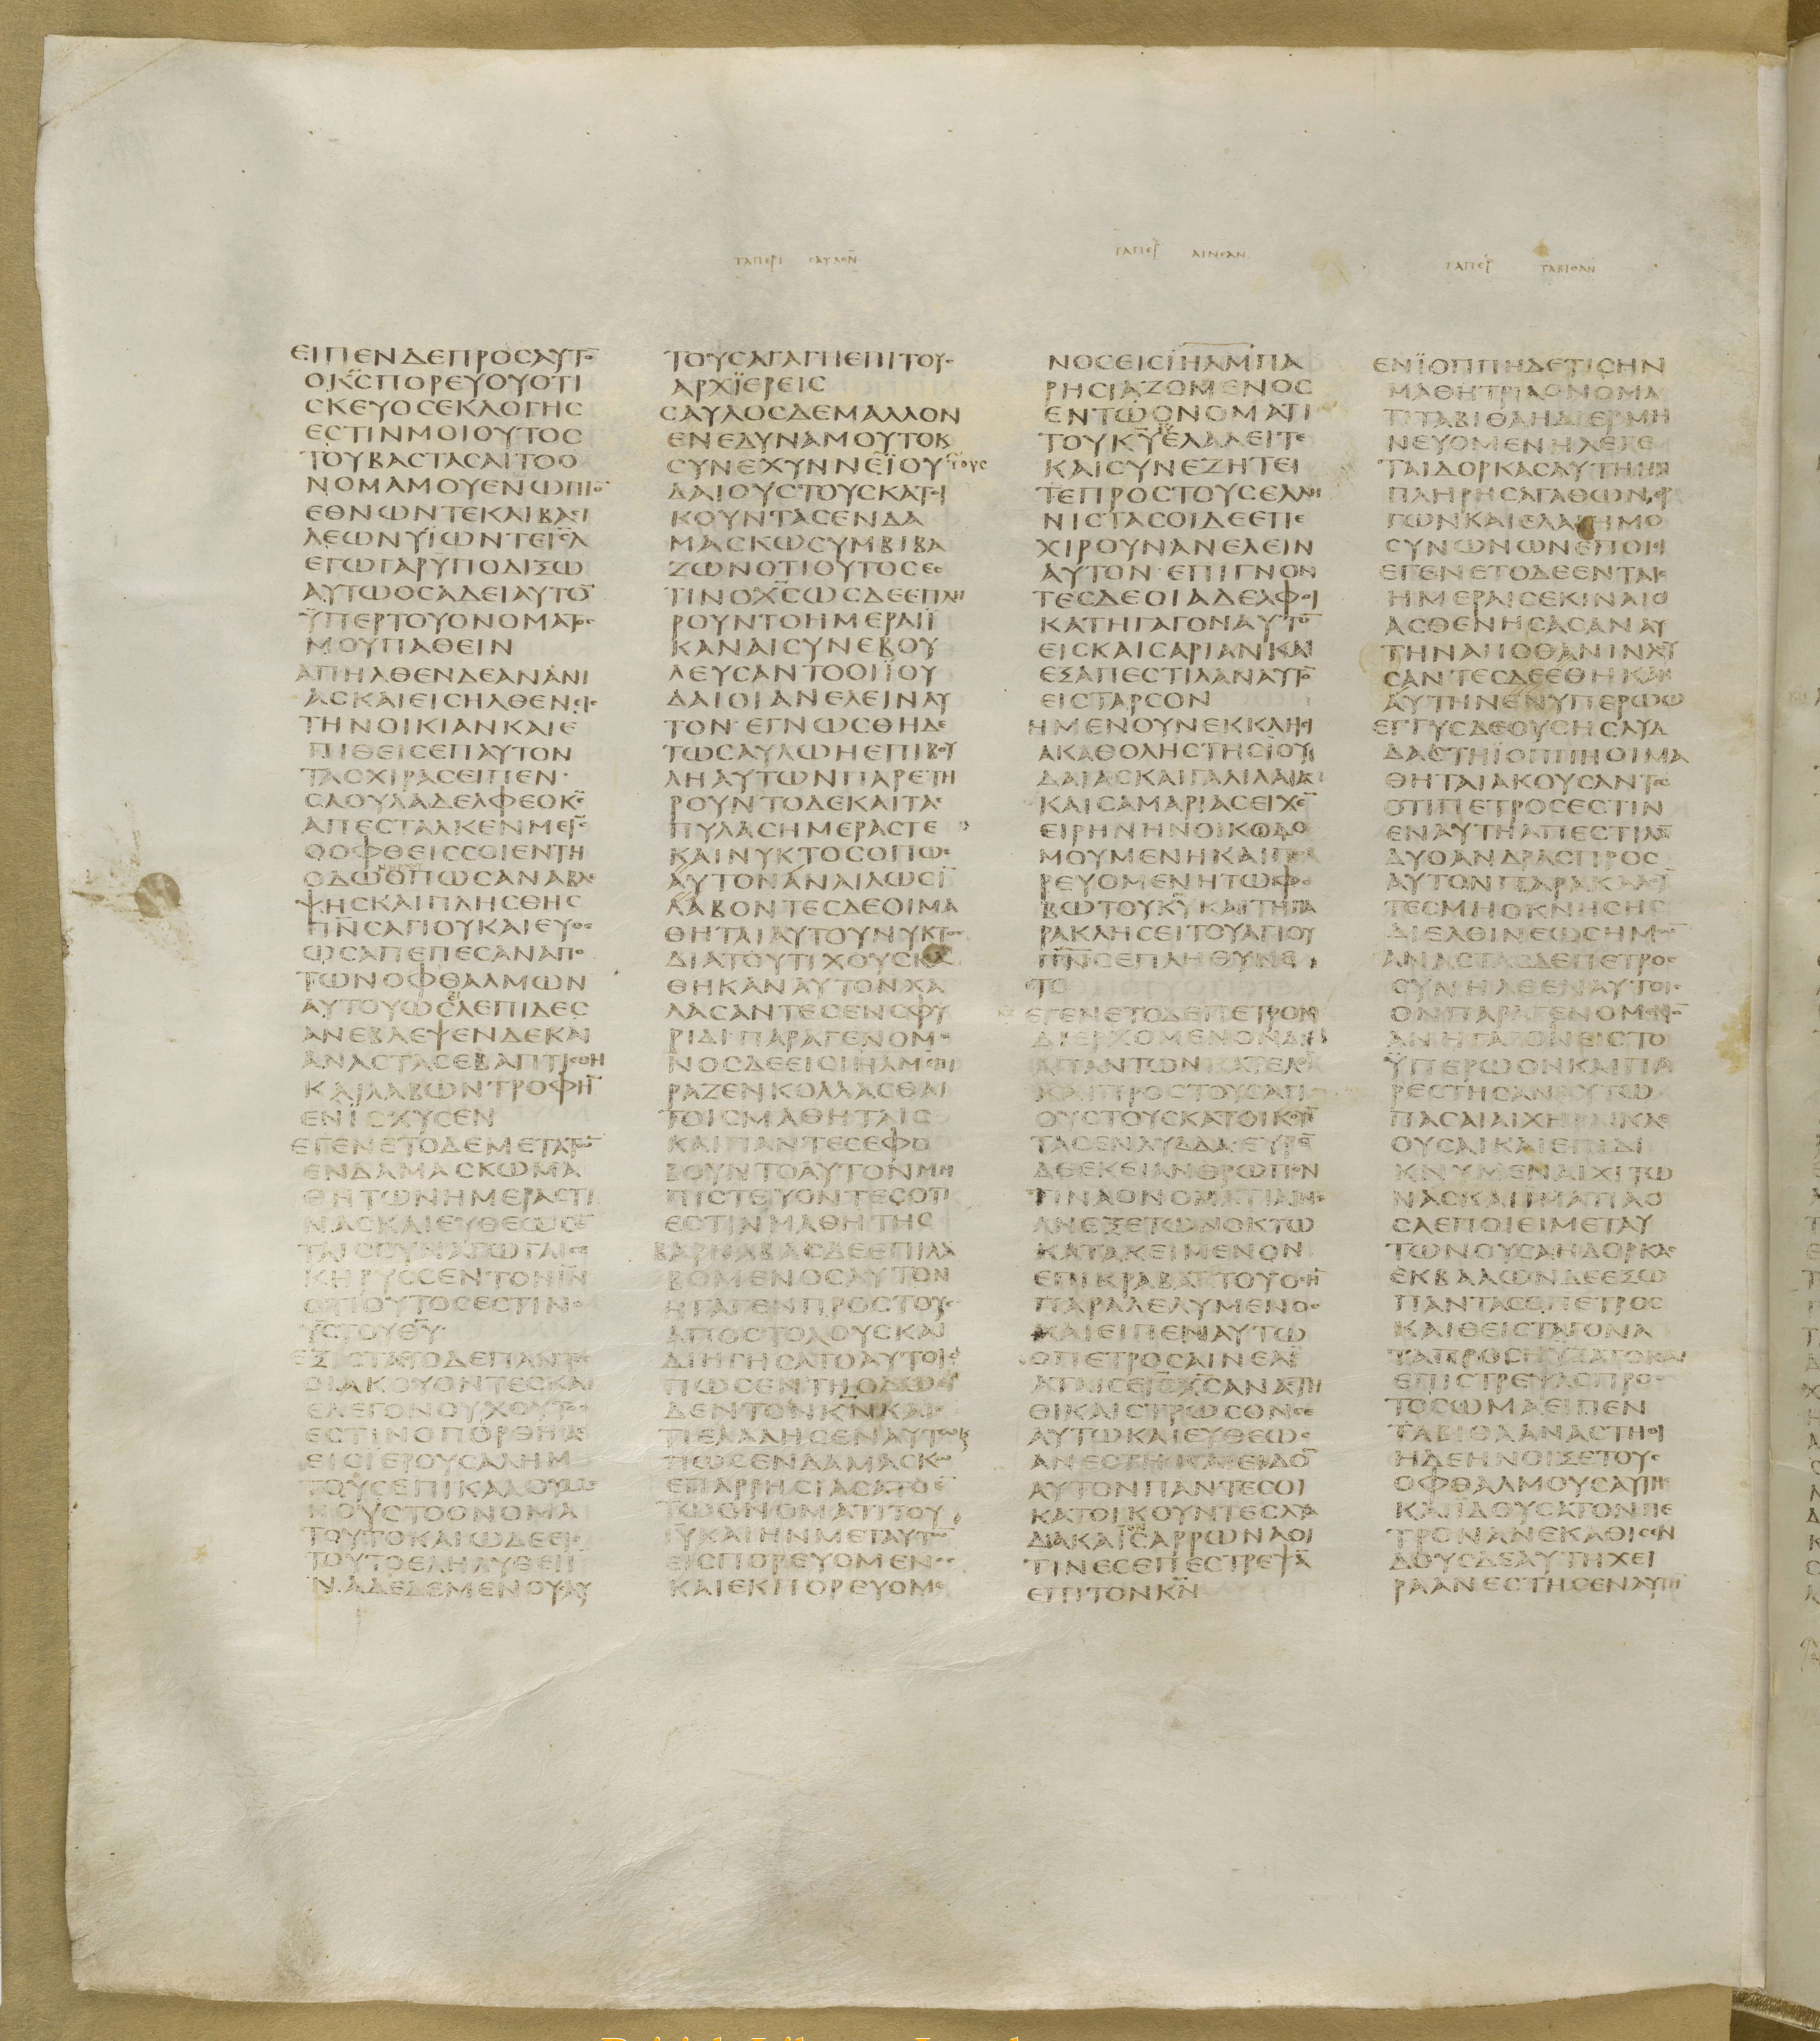 ΤΑΠΕΡΙ ΣΑΥΛΟΝ̅
ΤΑΠΕΡ ΑΙΝΕΑΝ
ΤΑΠΕΡ ΤΑΒΙΘΑΝ
ΕΙΠΕΝΔΕΠΡΟϹΑΥΤΟ̅
ΟΚ̅Ϲ̅ΠΟΡΕΥΟΥΟΤΙ
ϹΚΕΥΟϹΕΚΛΟΓΗϹ
ΕϹΤΙΝΜΟΙΟΥΤΟϹ
ΤΟΥΒΑϹΤΑϹΑΙΤΟΟ
ΝΟΜΑΜΟΥΕΝΩΠΙΟ̅
ΕΘΝΩΝΤΕΚΑΙΒΑϹΙ
ΛΕΩΝΥΪΩΝΤΕΙ̅Η̅Λ̅
ΕΓΩΓΑΡΥΠΟΔΙΞΩ
ΑΥΤΩΟϹΑΔΕΙΑΥΤΟ̅
ΫΠΕΡΤΟΥΟΝΟΜΑΤΟϹ
ΜΟΥΠΑΘΕΙΝ
ΑΠΗΛΘΕΝΔΕΑΝΑΝΙ
ΑϹΚΑΙΕΙϹΗΛΘΕΝΕΙϹ
ΤΗΝΟΙΚΙΑΝΚΑΙΕ
ΠΙΘΕΙϹΕΠΑΥΤΟΝ
ΤΑϹΧΙΡΑϹΕΙΠΕΝ·
ϹΑΟΥΛΑΔΕΛΦΕΟΚ̅Ϲ̅
ΑΠΕϹΤΑΛΚΕΝΜΕΙ̅Ϲ̅
ΟΟΦΘΕΙϹϹΟΙΕΝΤΗ
ΟΔΩΟΠΩϹΑΝΑΒΛΕ
ΨΗϹΚΑΙΠΛΗϹΘΗϹ
Π̅Ν̅Ϲ̅ΑΓΙΟΥΚΑΙΕΥΘΕ
ΩϹΑΠΕΠΕϹΑΝΑΠΟ
ΤΩΝΟΦΘΑΛΜΩΝ
ΑΥΤΟΥΩϹΛΕΠΙΔΕϹ
ΑΝΕΒΛΕΨΕΝΔΕΚΑΙ
ΑΝΑϹΤΑϹΕΒΑΠΤΙϹΘΗ
ΚΑΙΛΑΒΩΝΤΡΟΦΗ̅
ΕΝΪϹΧΥϹΕΝ
ΕΓΕΝΕΤΟΔΕΜΕΤΑΤΩ̅
ΕΝΔΑΜΑϹΚΩΜΑ
ΘΗΤΩΝΗΜΕΡΑϹΤΙ
ΝΑϹΚΑΙΕΥΘΕΩϹΕ̅
ΤΑΙϹϹΥΝΑΓΩΓΑΙϹ
ΕΚΗΡΥϹϹΕΝΤΟΝΙ̅Ν̅
ΟΤΙΟΥΤΟϹΕϹΤΙΝΟ
Υ̅Ϲ̅ΤΟΥΘ̅Υ̅·
ΕΞΙϹΤΑΝΤΟΔΕΠΑΝΤΕϹ
ΟΙΑΚΟΥΟΝΤΕϹΚΑΙ
ΕΛΕΓΟΝΟΥΧΟΥΤΟϹ
ΕϹΤΙΝΟΠΟΡΘΗϹΑϹ
ΕΙϹΙΕΡΟΥϹΑΛΗΜ
ΤΟΥϹΕΠΙΚΑΛΟΥΜΕ
ΝΟΥϹΤΟΟΝΟΜΑ
ΤΟΥΤΟΚΑΙΩΔΕΕΙϹ
ΤΟΥΤΟΕΛΗΛΥΘΕΙΪ
ΝΑΔΕΔΕΜΕΝΟΥϹΑΥ
ΤΟΥϹΑΓΑΓΗΕΠΙΤΟΥϹ
ΑΡΧΪΕΡΕΙϹ
ϹΑΥΛΟϹΔΕΜΑΛΛΟΝ
ΕΝΕΔΥΝΑΜΟΥΤΟΚ
ϹΥΝΕΧΥΝΝΕΪΟΥ ΤΟΥϹ
ΔΑΙΟΥϹΤΟΥϹΚΑΤΟΙ
ΚΟΥΝΤΑϹΕΝΔΑ
ΜΑϹΚΩϹΥΜΒΙΒΑ
ΖΩΝΟΤΙΟΥΤΟϹΕϹ
ΤΙΝΟΧ̅Ϲ̅ΩϹΔΕΕΠΛΗ
ΡΟΥΝΤΟΗΜΕΡΑΙΪ
ΚΑΝΑΙϹΥΝΕΒΟΥ
ΛΕΥϹΑΝΤΟΟΙΪΟΥ
ΔΑΙΟΙΑΝΕΛΕΙΝΑΥ
ΤΟΝ·ΕΓΝΩϹΘΗΔΕ
ΤΩϹΑΥΛΩΗΕΠΙΒΟΥ
ΛΗΑΥΤΩΝΠΑΡΕΤΗ
ΡΟΥΝΤΟΔΕΚΑΙΤΑϹ
ΠΥΛΑϹΗΜΕΡΑϹΤΕ
ΚΑΙΝΥΚΤΟϹΟΠΩϹ
ΑΥΤΟΝΑΝΑΙΛΩϹΙ̅
ΛΑΒΟΝΤΕϹΔΕΟΙΜΑ
ΘΗΤΑΙΑΥΤΟΥΝΥΚΤΟϹ
ΔΙΑΤΟΥΤΙΧΟΥϹΚΑ
ΘΗΚΑΝΑΥΤΟΝΧΑ
ΛΑϹΑΝΤΕϹΕΝϹΦΥ
ΡΙΔΙ·ΠΑΡΑΓΕΝΟΜΕ
ΝΟϹΔΕΕΙϹΙΗΛΜΕΠΙ
ΡΑΖΕΝΚΟΛΛΑϹΘΑΙ
ΤΟΙϹΜΑΘΗΤΑΙϹ
ΚΑΙΠΑΝΤΕϹΕΦΟ
ΒΟΥΝΤΟΑΥΤΟΝΜΗ
ΠΙϹΤΕΥΟΝΤΕϹΟΤΙ
ΕϹΤΙΝΜΑΘΗΤΗϹ
ΒΑΡΝΑΒΑϹΔΕΕΠΙΛΑ
ΒΟΜΕΝΟϹΑΥΤΟΝ
ΗΓΑΓΕΝΠΡΟϹΤΟΥϹ
ΑΠΟϹΤΟΛΟΥϹΚΑΙ
ΔΙΗΓΗϹΑΤΟΑΥΤΟΙϹ
ΠΩϹΕΝΤΗΟΔΩΕΙ
ΔΕΝΤΟΝΚ̅Ν̅ΚΑΙ
ΤΙΕΛΑΛΗϹΕΝΑΥΤΩΚ
ΠΩϹΕΝΔΑΜΑϹΚΩ
ΕΠΑΡΡΗϹΙΑϹΑΤΟΕ̅
ΤΩΟΝΟΜΑΤΙΤΟΥ
Ι̅Υ̅ΚΑΙΗΝΜΕΤΑΥΤΩ̅
ΕΙϹΠΟΡΕΥΟΜΕΝΟϹ
ΚΑΙΕΚΠΟΡΕΥΟΜΕ
ΝΟϹΕΙϹΙΗΛΜΠΑ
ΡΗϹΙΑΖΟΜΕΝΟϹ
ΕΝΤΩΟΝΟΜΑΤΙ
ΤΟΥΚ̅Υ̅ΕΛΑΛΕΙΤΕ
ΚΑΙϹΥΝΕΖΗΤΕΙ
ΤΕΠΡΟϹΤΟΥϹΕΛΛΗ
ΝΙϹΤΑϹΟΙΔΕΕΠΕ
ΧΙΡΟΥΝΑΝΕΛΕΙΝ
ΑΥΤΟΝ·ΕΠΙΓΝΟΝ
ΤΕϹΔΕΟΙΑΔΕΛΦΟΙ
ΚΑΤΗΓΑΓΟΝΑΥΤΟ̅
ΕΙϹΚΑΙϹΑΡΙΑΝΚΑΙ
ΕΞΑΠΕϹΤΙΛΑΝΑΥΤΟ̅
ΕΙϹΤΑΡϹΟΝ
ΗΜΕΝΟΥΝΕΚΚΛΗϹΙ
ΑΚΑΘΟΛΗϹΤΗϹΙΟΥ
ΔΑΙΑϹΚΑΙΓΑΛΙΛΑΙΑϹ
ΚΑΙϹΑΜΑΡΙΑϹΕΙΧΕ̅
ΕΙΡΗΝΗΝΟΙΚΟΔΟ
ΜΟΥΜΕΝΗΚΑΙΠΟ
ΡΕΥΟΜΕΝΗΤΩΦΟ
ΒΩΤΟΥΚ̅Υ̅ΚΑΙΤΗΠΑ
ΡΑΚΛΗϹΕΙΤΟΥΑΓΙΟΥ
Π̅Ν̅Ϲ̅ΕΠΛΗΘΥΝΕ
ΤΟ
ΕΓΕΝΕΤΟΔΕΠΕΤΡΟΝ
ΔΙΕΡΧΟΜΕΝΟΝΔΙΑ
ΠΑΝΤΩΝΚΑΤΕΛΘΙ̅
ΚΑΙΠΡΟϹΤΟΥϹΑΓΙ
ΟΥϹΤΟΥϹΚΑΤΟΙΚΟΥ̅
ΤΑϹΕΝΛΥΔΔΑ·ΕΥΡΕ̅
ΔΕΕΚΕΙΑΝΘΡΩΠΟΝ
ΤΙΝΑΟΝΟΜΑΤΙΑΙΝΕ
ΑΝΕΞΕΤΩΝΟΚΤΩ
ΚΑΤΑΚΕΙΜΕΝΟΝ
ΕΠΙΚΡΑΒΑΚΤΟΥΟϹΗ̅
ΠΑΡΑΛΕΛΥΜΕΝΟϹ
ΚΑΙΕΙΠΕΝΑΥΤΩ
ΟΠΕΤΡΟϹΑΙΝΕΑΪ
ΑΤΑΙϹΕΙ̅Ϲ̅Χ̅Ϲ̅ΑΝΑϹΤΗ
ΘΙΚΑΙϹΤΡΩϹΟΝϹΕ
ΑΥΤΩΚΑΙΕΥΘΕΩϹ
ΑΝΕϹΤΗΚΑΙΕΙΔΟ̅
ΑΥΤΟΝΠΑΝΤΕϹΟΙ
ΚΑΤΟΙΚΟΥΝΤΕϹΛΥΔ
ΔΑΚΑΙϹΑΡΡΩΝΑΟΙ
ΤΙΝΕϹΕΠΕϹΤΡΕΨΑ̅
ΕΠΙΤΟΝΚ̅Ν̅
ΕΝΪΟΠΠΗΔΕΤΙϹΗΝ
ΜΑΘΗΤΡΙΑΟΝΟΜΑ
ΤΙΤΑΒΙΘΑΗΔΙΕΡΜΗ
ΝΕΥΟΜΕΝΗΛΕΓΕ
ΤΑΙΔΟΡΚΑϹΑΥΤΗΗΝ
ΠΛΗΡΗϹΑΓΑΘΩΝΕΡ
ΓΩΝΚΑΙΕΛΑΙΗΜΟ
ϹΥΝΩΝΩΝΕΠΟΙΕΙ
ΕΓΕΝΕΤΟΔΕΕΝΤΑΙϹ
ΗΜΕΡΑΙϹΕΚΙΝΑΙϹ
ΑϹΘΕΝΗϹΑϹΑΝΑΥ
ΤΗΝΑΠΟΘΑΝΙΝΛΟΥ
ϹΑΝΤΕϹΔΕΕΘΗΚΑΝ
ΑΥΤΗΝΕΝΥΠΕΡΩΩ
ΕΓΓΥϹΔΕΟΥϹΗϹΛΥΔ
ΔΑϹΤΗΪΟΠΠΗΟΙΜΑ
ΘΗΤΑΙΑΚΟΥϹΑΝΤΕϹ
ΟΤΙΠΕΤΡΟϹΕϹΤΙΝ
ΕΝΑΥΤΗΑΠΕϹΤΙΛΑ̅
ΔΥΟΑΝΔΡΑϹΠΡΟϹ
ΑΥΤΟΝΠΑΡΑΚΑΛΟΥ̅
ΤΕϹΜΗΟΚΝΗϹΗϹ
ΔΙΕΛΘΙΝΕΩϹΗΜΩ̅
ΑΝΑϹΤΑϹΔΕΠΕΤΡΟϹ
ϹΥΝΗΛΘΕΝΑΥΤΟΙϹ
ΟΝΠΑΡΑΓΕΝΟΜΕΝΟ̅
ΑΝΗΓΑΓΟΝΕΙϹΤΟ
ΫΠΕΡΩΟΝΚΑΙΠΑ
ΡΕϹΤΗϹΑΝΑΥΤΩ
ΠΑϹΑΙΑΙΧΗΡΑΙΚΛΑΙ
ΟΥϹΑΙΚΑΙΕΠΙΔΙ
ΚΝΥΜΕΝΑΙΧΙΤΩ
ΝΑϹΚΑΙΙΜΑΤΙΑΟ
ϹΑΕΠΟΙΕΙΜΕΤΑΥ
ΤΩΝΟΥϹΑΗΔΟΡΚΑϹ
ΕΚΒΑΛΩΝΔΕΕΞΩ
ΠΑΝΤΑϹΟΠΕΤΡΟϹ
ΚΑΙΘΕΙϹΤΑΓΟΝΑ
ΤΑΠΡΟϹΗΥΞΑΤΟΚΑΙ
ΕΠΙϹΤΡΕΨΑϹΠΡΟϹ
ΤΟϹΩΜΑΕΙΠΕΝ
ΤΑΒΙΘΑΑΝΑϹΤΗΘΙ
ΗΔΕΗΝΟΙΞΕΤΟΥϹ
ΟΦΘΑΛΜΟΥϹΑΥΤΗϹ
ΚΑΙΪΔΟΥϹΑΤΟΝΠΕ
ΤΡΟΝΑΝΕΚΑΘΙϹΕΝ
ΔΟΥϹΔΕΑΥΤΗΧΕΙ
ΡΑΑΝΕϹΤΗϹΕΝΑΥΤΗ̅